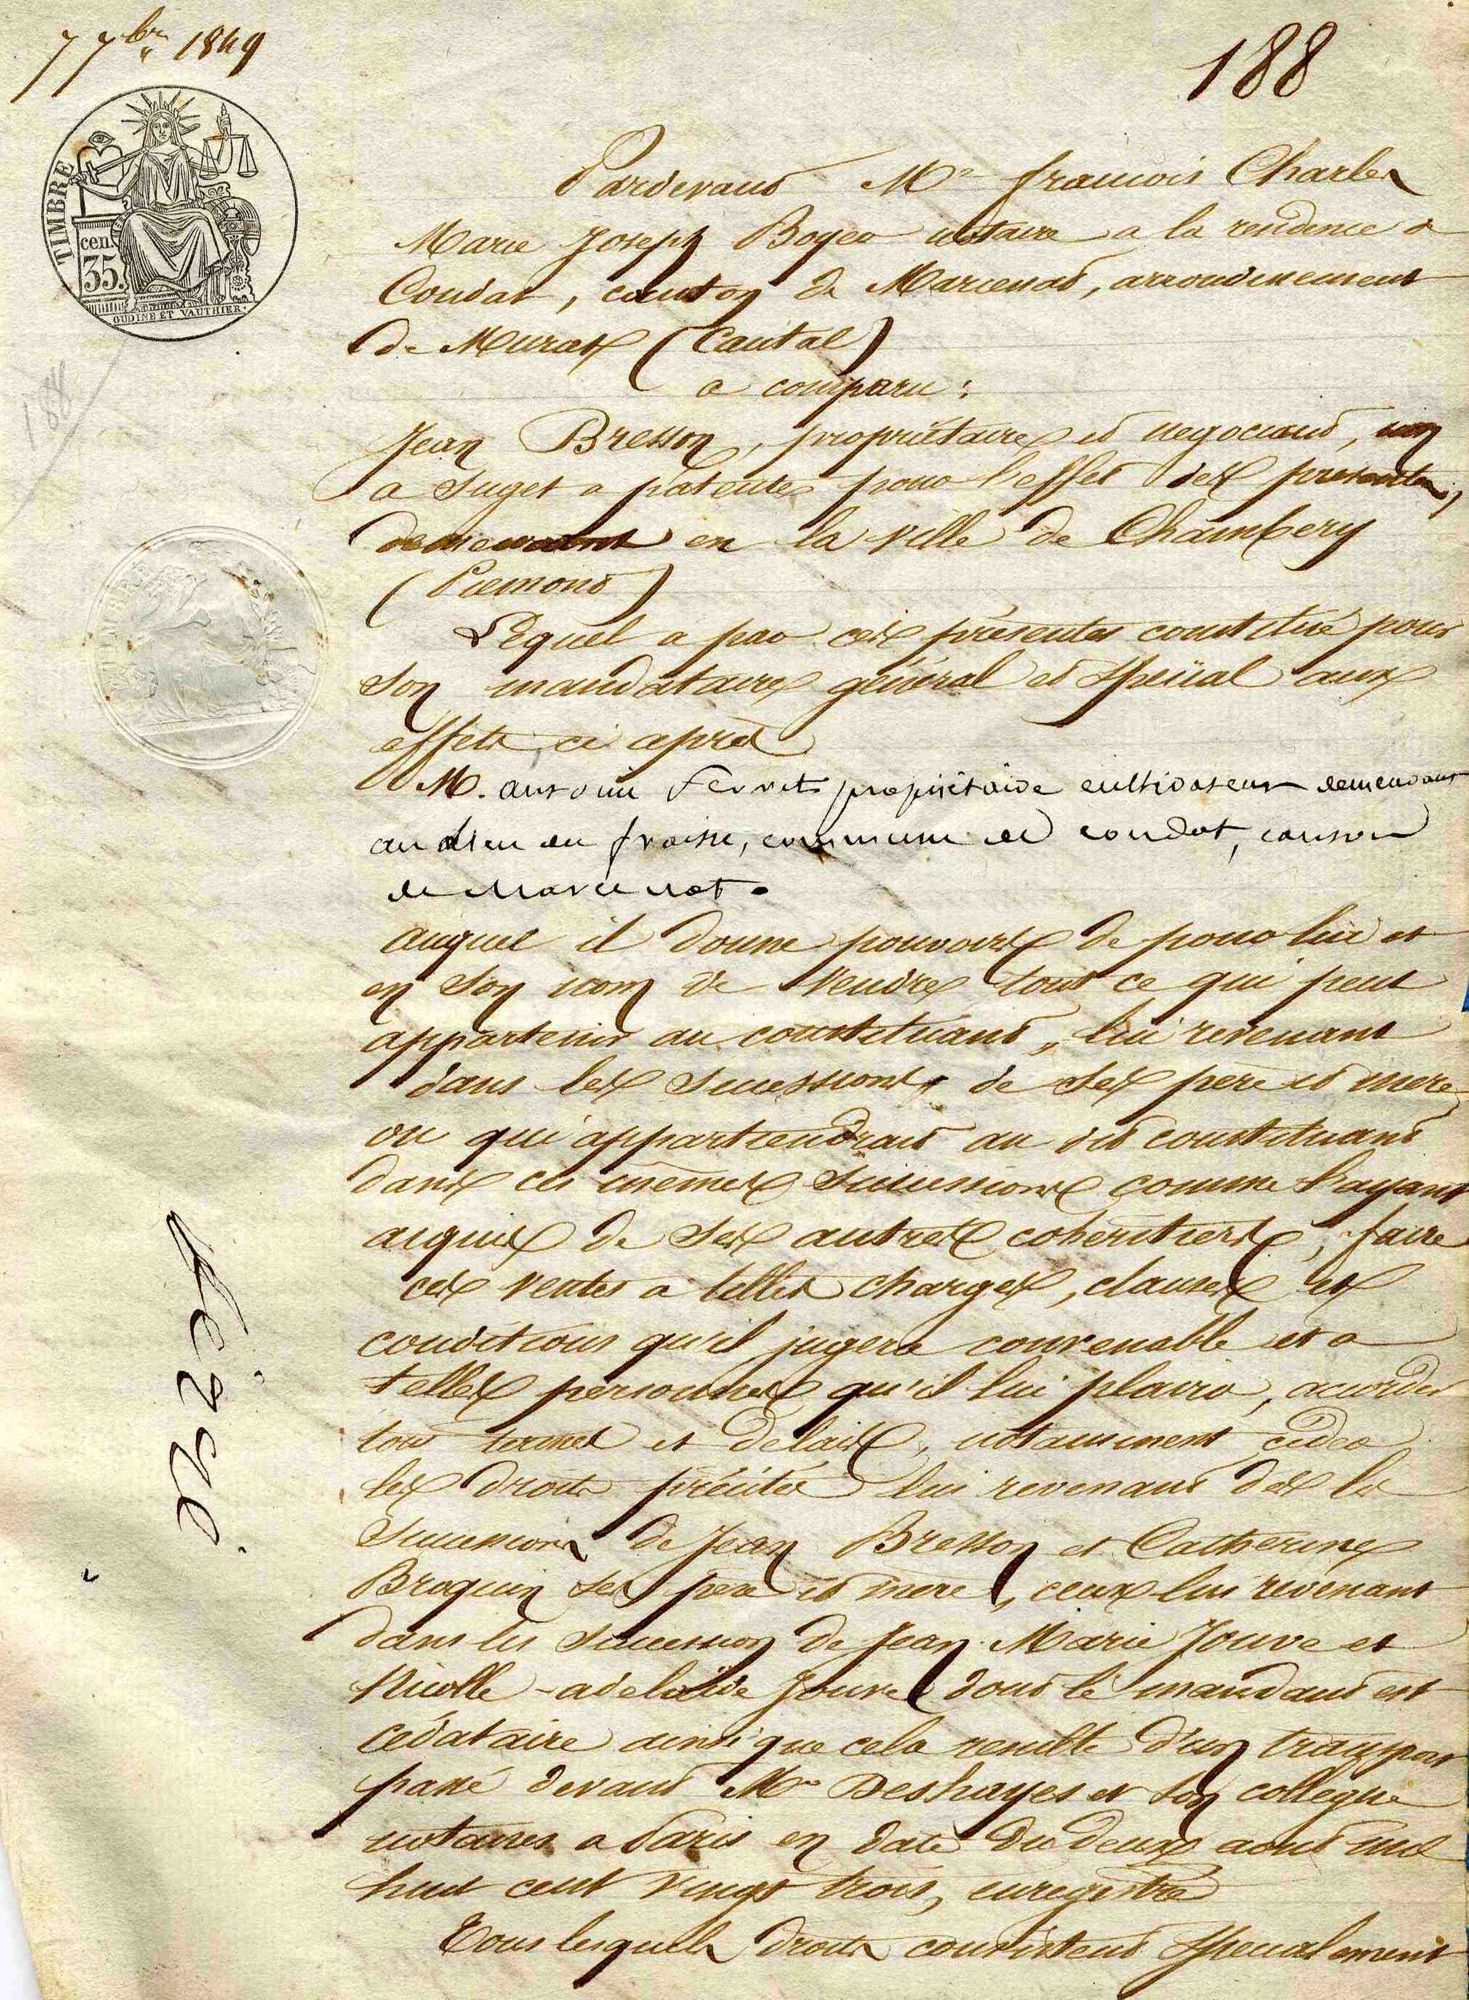 7 7bre 1849
188
TIMBRE
cen.
35.
OUDINE ET VAUTHIER.
188
Pardevant Me francois Charles
Marie Joseph Boyer notaire a la residence de
Condat, canton de Marcenat, arrondissement
de Murat (Cantal)
a comparu :
Jean Bresson, propriétaire et negociant, non
a suget a patente pour l'effet des presentes,
demeurant en la ville de Chambery
(Piemont)
Lequel a par ces présentes constitué pour
son mandataire général et spécial aux
effets ci après
M. antoine propriétaire cultivateur demeurant
au lieu du fraisse, commune de condat, canson
de Marcenat.
auquel il donne pouvoir de pour lui et
en son nom de vendre tout ce qui peut
appartenir au constituant, lui revenant
dans les successions de ses père et mere
ou qui appartiendrait au dit constituant
dans ces mêmes successions comme l'ayant
acquis de ses autres coheritiers, faire
ces ventes a telles charges, clauses et
conditions qu'il jugera convenable et a
telles personnes qu'il lui plaira, acorder
tous termes et délais, notamment céder
les droits précités lui revenant des la
succession de Jean Bresson et Catherine
Broquin ses pere et mere, ceux lui revenant
dans les succession de Jean Marie Jouve et
Nicolle-adelaïde Jouve dont le mandant est
cédataire ainsi que cela resulte d'un transport
passé devant Me Deshayes et son collegue
notaires a Paris en date du deux aout mil
huit cent vingt trois, enregistré
Tous lesquels droits consistent specialement